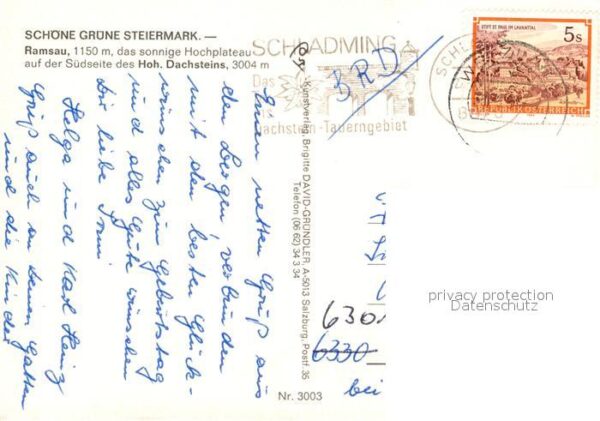 SCHÖNE GRÜNE STEIERMARK. —
Ramsau, 1150 m, das sonnige Hochplateau
auf der Südseite des Hoh. Dachsteins, 3004 m
SCHLADMING
Das
Dachstein-Tauerngebiet
BRD
STIFT ST. PAUL IM LAVANTTAL
5 S
REPUBLIK ÖSTERREICH
Einen netten Gruß aus
den Bergen verbunden
mit den besten Glück-
wünschen zum Geburtstag
und alles Gute wünschen
Dir liebe
Helga und Karl Heinz
Gruß auch an Deinen Gatten
und die Kinder
Kunstverlag Brigitte DAVID-GRÜNDLER, A-5013 Salzburg, Postf. 35
Telefon (06 62) 34 3 34
630
6330
bei
Nr. 3003
privacy protection
Datenschutz